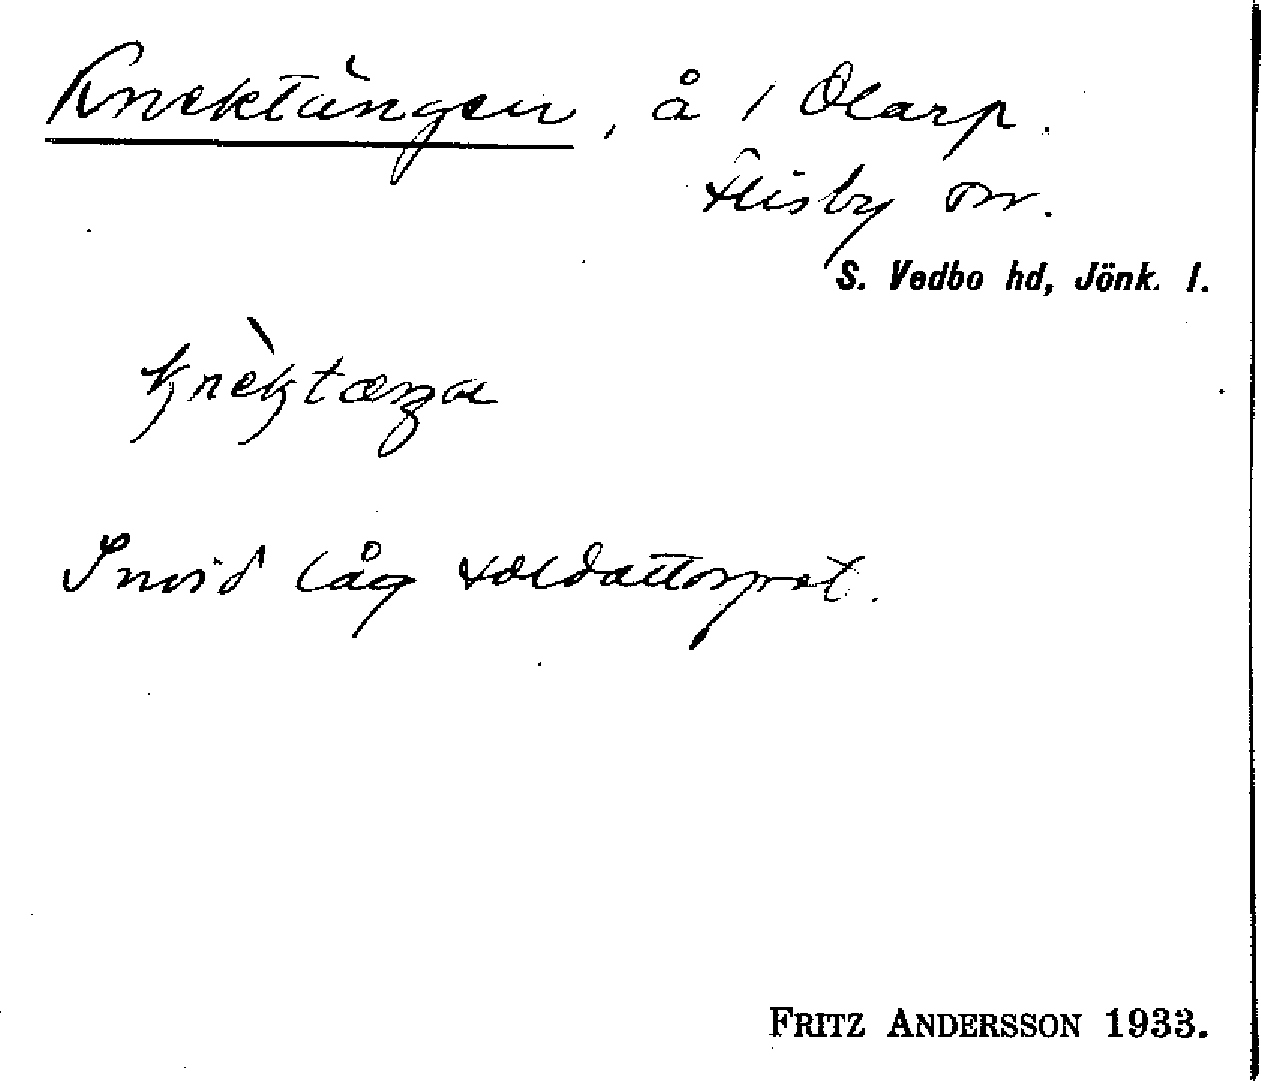 Knektängen, å / Olarp.
Flisby sn.
S. Vedbo hd, Jönk. l.
Invid låg soldattorpet.
FRITZ ANDERSSON 1933.